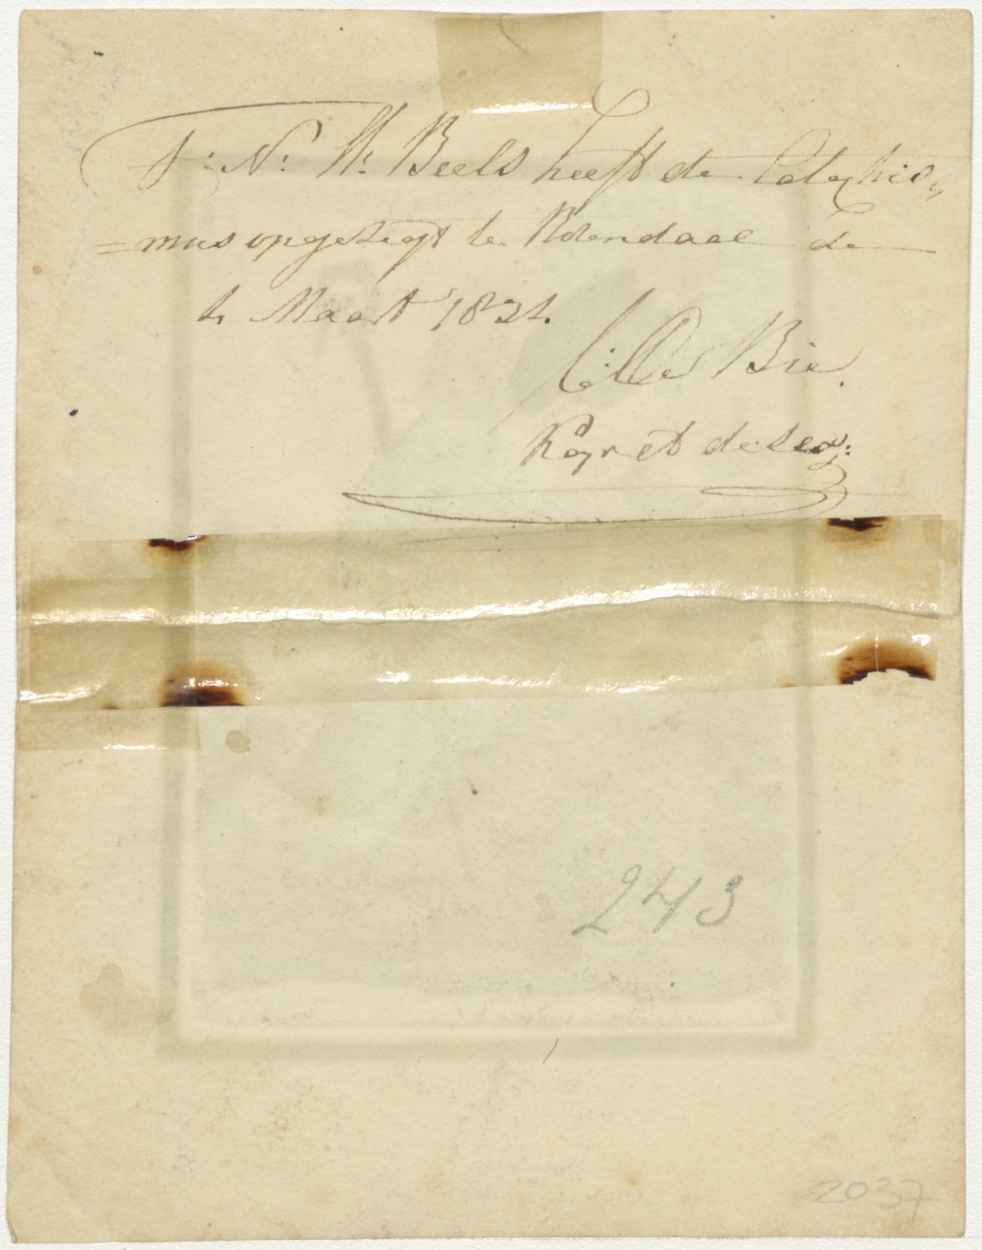 F: N: W: Beels heeft de Catechis„
=mus opgezegt te Rosendaal de
4 Maart 1824.
C: De Bie.
et
243
2037